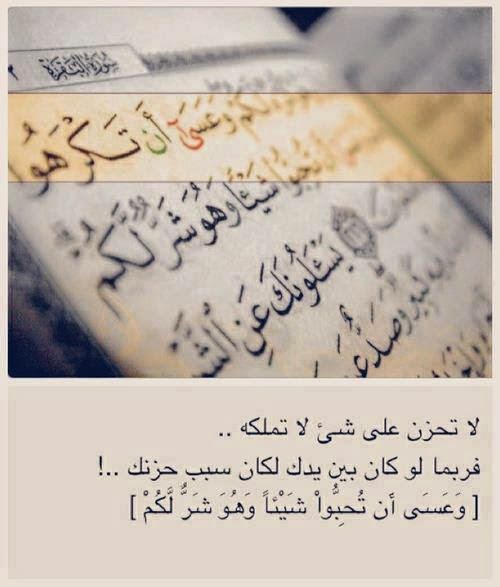 سورة البقرة
لكم وعسى أن تكرهوا
تحبوا شيئا وهو شر لكم
يسئلونك عن الش
وصد عن
لا تحزن على شئ لا تملكه ..
فربما لو كان بين يدك لكان سبب حزنك ..!
[ وَعَسَى أن تُحِبُّواْ شَيْئاً وَهُوَ شَرٌّ لَّكُمْ ]